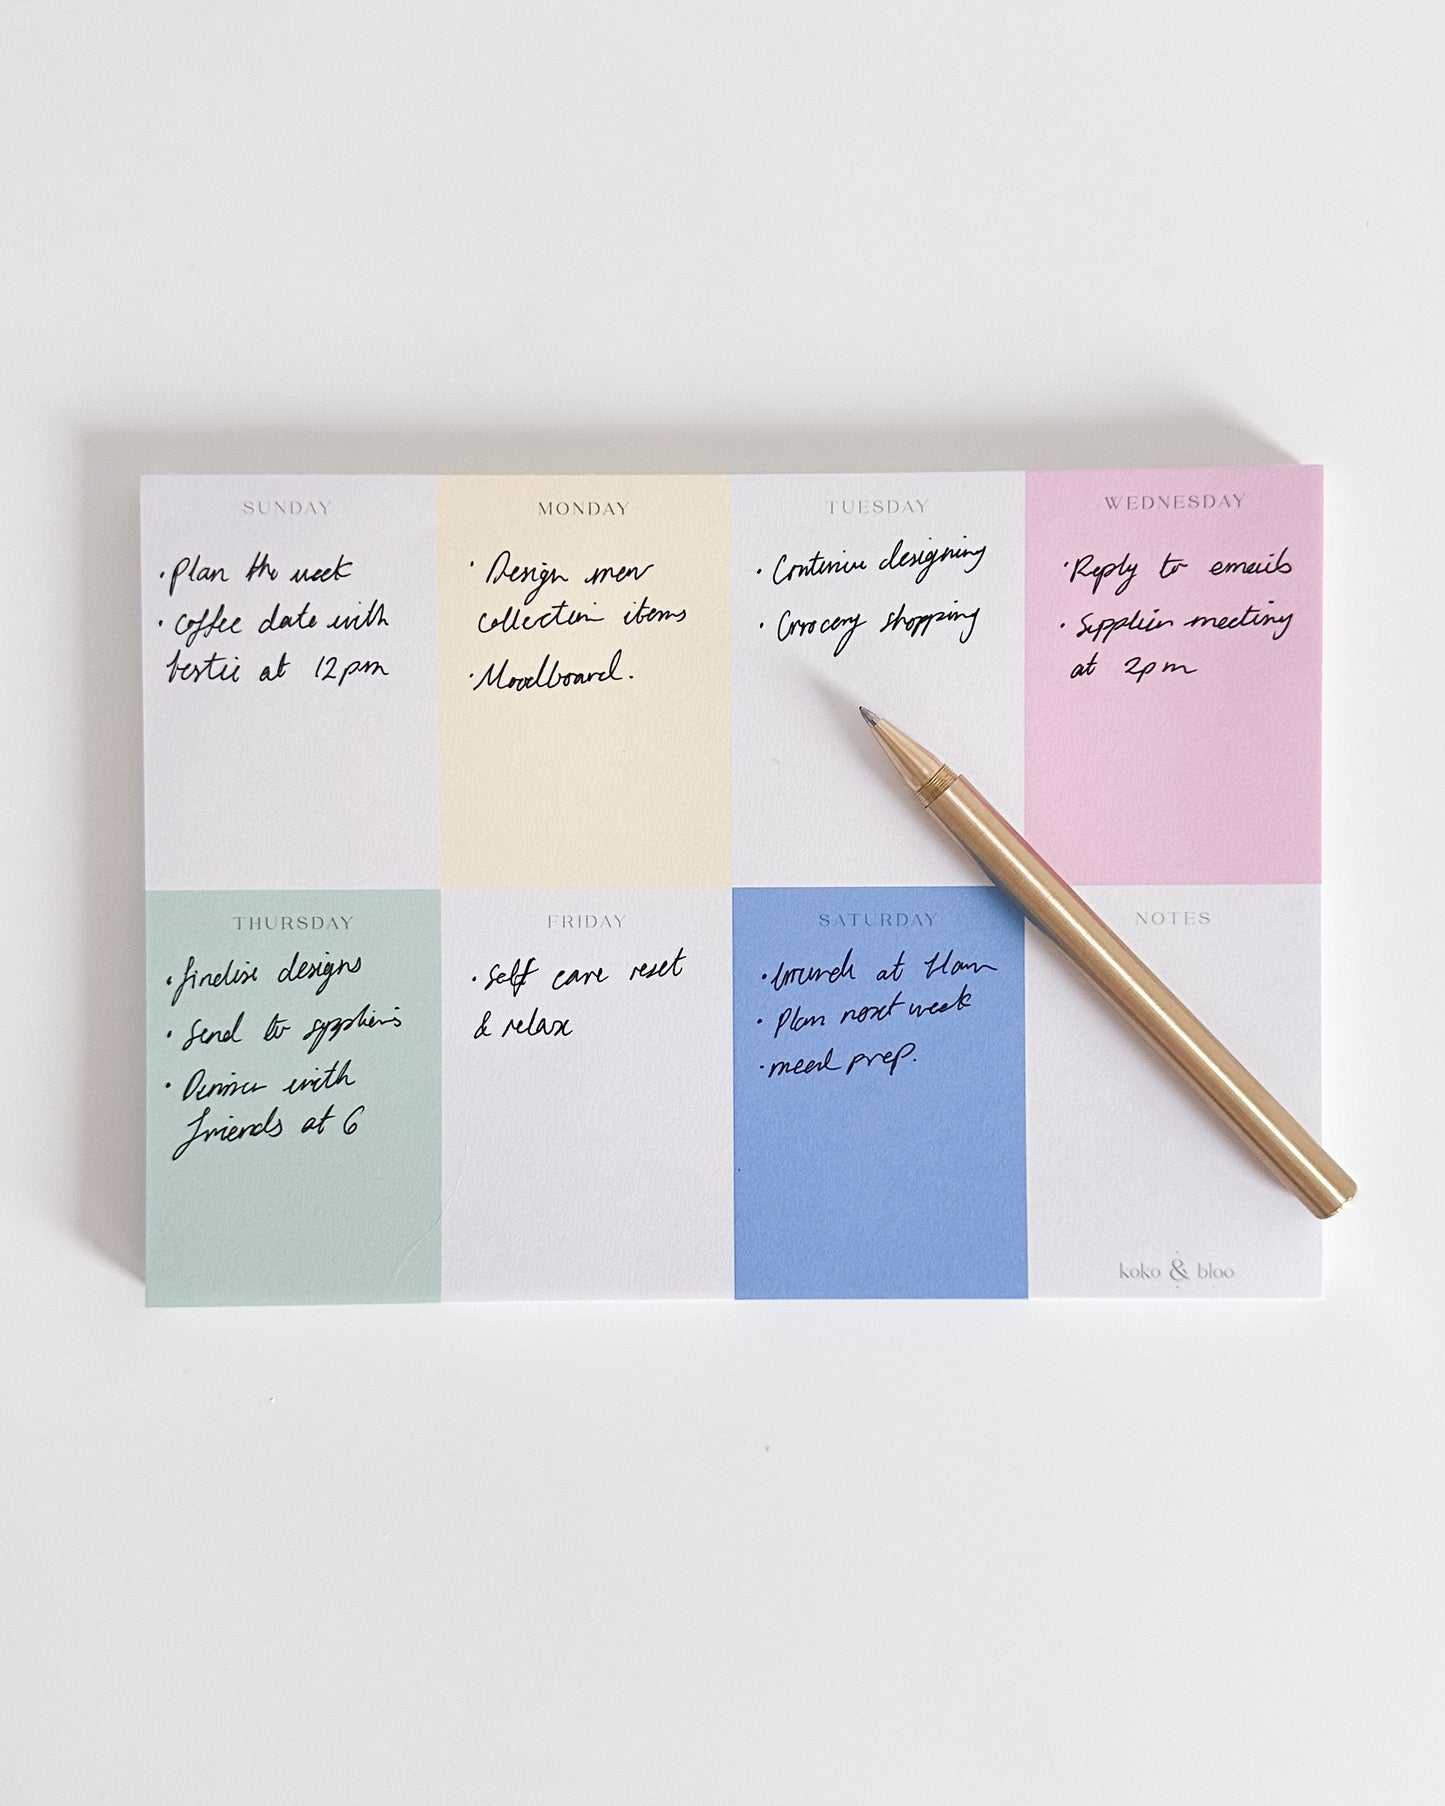 SUNDAY
• Plan the week
• Coffee date with
bestie at 12pm
MONDAY
• Design new
collection items
• Moodboard.
TUESDAY
• Continue designing
• Grocery shopping
WEDNESDAY
• Reply to emails
• Supplier meeting
at 2pm
THURSDAY
• finalise designs
• Send to suppliers
• Dinner with
friends at 6
FRIDAY
• Self care reset
& relax
SATURDAY
• brunch at 11am
• Plan next week
• meal prep.
NOTES
koko & bloo